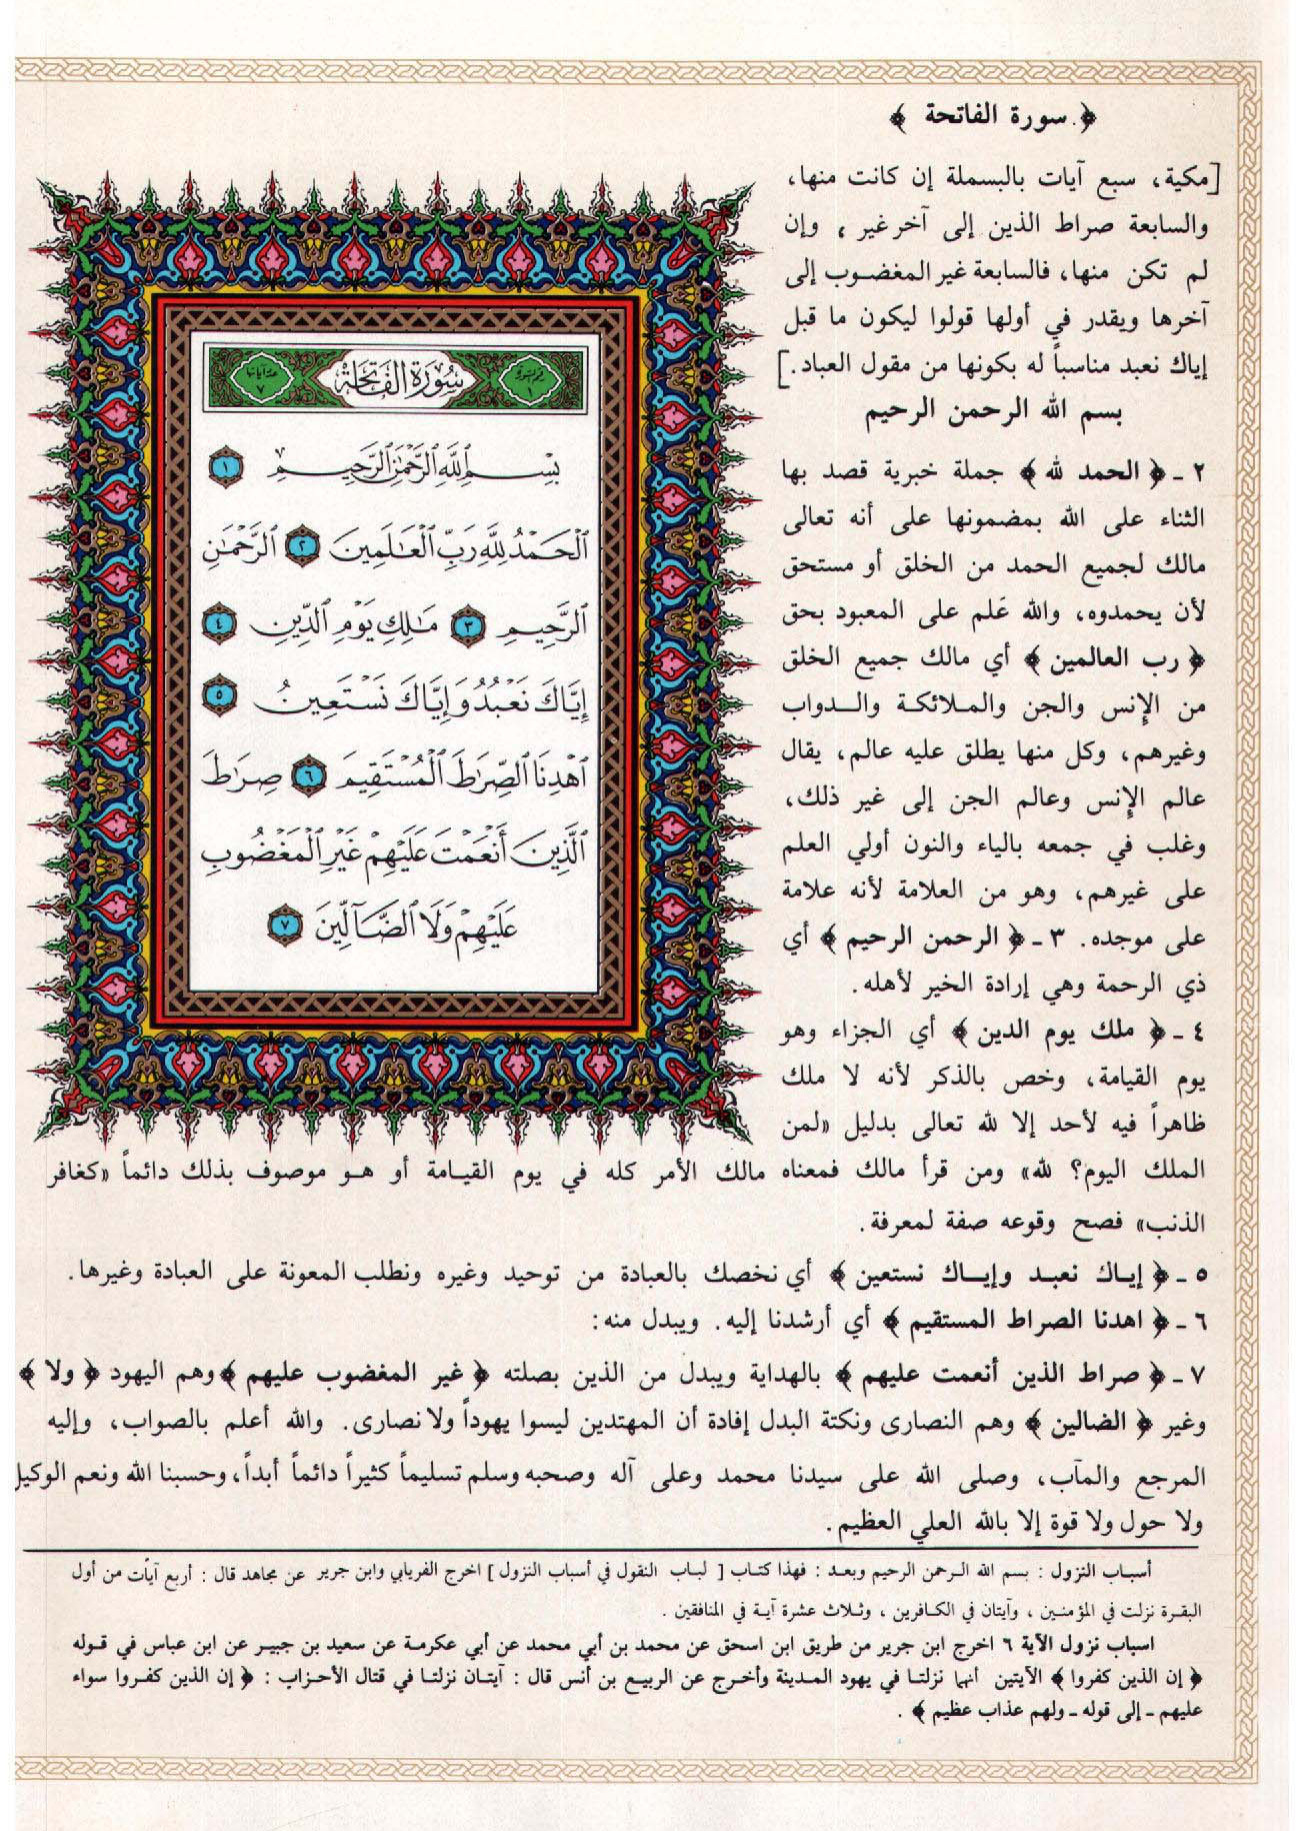 ﴿ سورة الفاتحة ﴾
[مكية، سبع آيات بالبسملة إن كانت منها،
والسابعة صراط الذين إلى آخر غير ، وإن
لم تكن منها، فالسابعة غير المغضوب إلى
آخرها ويقدر في أولها قولوا ليكون ما قبل
إياك نعبد مناسباً له بكونها من مقول العباد.]
بسم الله الرحمن الرحيم
٢ ـ ﴿ الحمد لله ﴾ جملة خبرية قصد بها
الثناء على الله بمضمونها على أنه تعالى
مالك لجميع الحمد من الخلق أو مستحق
لأن يحمدوه، والله عَلم على المعبود بحق
﴿ رب العالمين ﴾ أي مالك جميع الخلق
من الإنس والجن والملائكة والدواب
وغيرهم، وكل منها يطلق عليه عالم، يقال
عالم الإنس وعالم الجن إلى غير ذلك،
وغلب في جمعه بالياء والنون أولي العلم
على غيرهم، وهو من العلامة لأنه علامة
على موجده. ٣ ـ ﴿ الرحمن الرحيم ﴾ أي
ذي الرحمة وهي إرادة الخير لأهله.
٤ ـ ﴿ ملك يوم الدين ﴾ أي الجزاء وهو
يوم القيامة، وخص بالذكر لأنه لا ملك
ظاهراً فيه لأحد إلا لله تعالى بدليل «لمن
الملك اليوم؟ لله» ومن قرأ مالك فمعناه مالك الأمر كله في يوم القيامة أو هو موصوف بذلك دائماً «كغافر
الذنب» فصح وقوعه صفة لمعرفة.
٥ ـ ﴿ إياك نعبد وإياك نستعين ﴾ أي نخصك بالعبادة من توحيد وغيره ونطلب المعونة على العبادة وغيرها.
٦ ـ ﴿ اهدنا الصراط المستقيم ﴾ أي أرشدنا إليه. ويبدل منه:
٧ ـ ﴿ صراط الذين أنعمت عليهم ﴾ بالهداية ويبدل من الذين بصلته ﴿ غير المغضوب عليهم ﴾ وهم اليهود ﴿ ولا ﴾
وغير ﴿ الضالين ﴾ وهم النصارى ونكتة البدل إفادة أن المهتدين ليسوا يهوداً ولا نصارى. والله أعلم بالصواب، وإليه
المرجع والمآب، وصلى الله على سيدنا محمد وعلى آله وصحبه وسلم تسليماً كثيراً دائماً أبداً، وحسبنا الله ونعم الوكيل
ولا حول ولا قوة إلا بالله العلي العظيم.
سُورَةُ الفَاتِحَة
رقم السورة ١
عدد آياتها ٧
بِسْمِ ٱللَّهِ ٱلرَّحْمَٰنِ ٱلرَّحِيمِ ١
ٱلْحَمْدُ لِلَّهِ رَبِّ ٱلْعَٰلَمِينَ ٢ ٱلرَّحْمَٰنِ
ٱلرَّحِيمِ ٣ مَٰلِكِ يَوْمِ ٱلدِّينِ ٤
إِيَّاكَ نَعْبُدُ وَإِيَّاكَ نَسْتَعِينُ ٥
ٱهْدِنَا ٱلصِّرَٰطَ ٱلْمُسْتَقِيمَ ٦ صِرَٰطَ
ٱلَّذِينَ أَنْعَمْتَ عَلَيْهِمْ غَيْرِ ٱلْمَغْضُوبِ
عَلَيْهِمْ وَلَا ٱلضَّآلِّينَ ٧
أسباب النزول : بسم الله الرحمن الرحيم وبعد : فهذا كتاب [ لباب النقول في أسباب النزول ] اخرج الفريابي وابن جرير عن مجاهد قال : أربع آيات من أول
البقرة نزلت في المؤمنين ، وآيتان في الكافرين ، وثلاث عشرة آية في المنافقين .
اسباب نزول الآية ٦ اخرج ابن جرير من طريق ابن اسحق عن محمد بن أبي محمد عن أبي عكرمة عن سعيد بن جبير عن ابن عباس في قوله
﴿ إن الذين كفروا ﴾ الآيتين أنهما نزلتا في يهود المدينة وأخرج عن الربيع بن أنس قال : آيتان نزلتا في قتال الأحزاب : ﴿ إن الذين كفروا سواء
عليهم ـ إلى قوله ـ ولهم عذاب عظيم ﴾ .